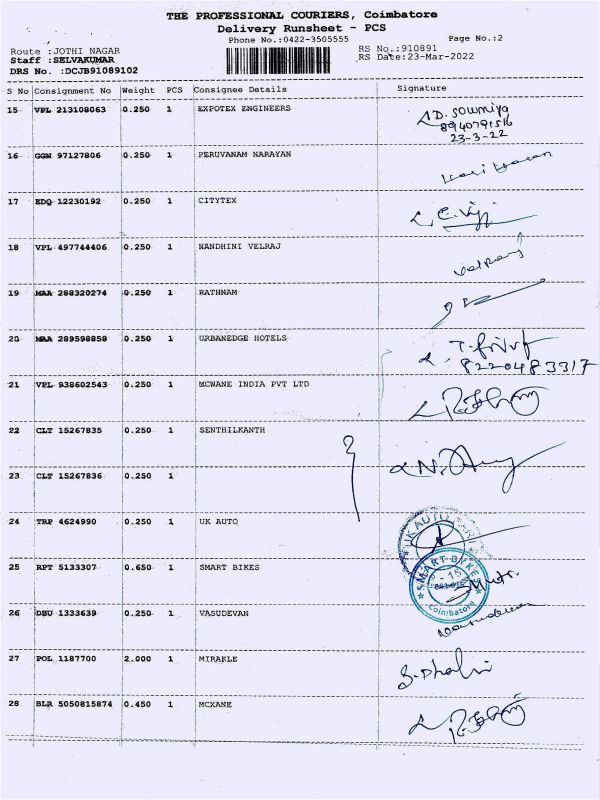 THE PROFESSIONAL COURIERS, Coimbatore
Delivery Runsheet - PCS
Phone No.:0422-3505555
Page No.:2
Route :JOTHI NAGAR
RS No.:910891
Staff :SELVAKUMAR
RS Date:23-Mar-2022
DRS No. :DCJB91089102
S No Consignment No Weight PCS Consignee Details Signature
15 VPL 213108063 0.250 1 EXPOTEX ENGINEERS D. Sowmiya
8940791516
23-3-22
16 GGN 97127806 0.250 1 PERUVANAM NARAYAN
17 EDQ 12230192 0.250 1 CITYTEX
18 VPL 497744406 0.250 1 NANDHINI VELRAJ Velraj
19 MAA 288320274 0.250 1 RATHNAM
20 MAA 289598858 0.250 1 URBANEDGE HOTELS
8220483317
21 VPL 938602543 0.250 1 MCWANE INDIA PVT LTD
22 CLT 15267835 0.250 1 SENTHILKANTH
23 CLT 15267836 0.250 1
24 TRP 4624990 0.250 1 UK AUTO
UK AUTO
25 RPT 5133307 0.650 1 SMART BIKES
SMART BIKE
Coimbatore
26 DBU 1333639 0.250 1 VASUDEVAN Vasudevan
27 POL 1187700 2.000 1 MIRAKLE
28 BLR 5050815874 0.450 1 MCXANE